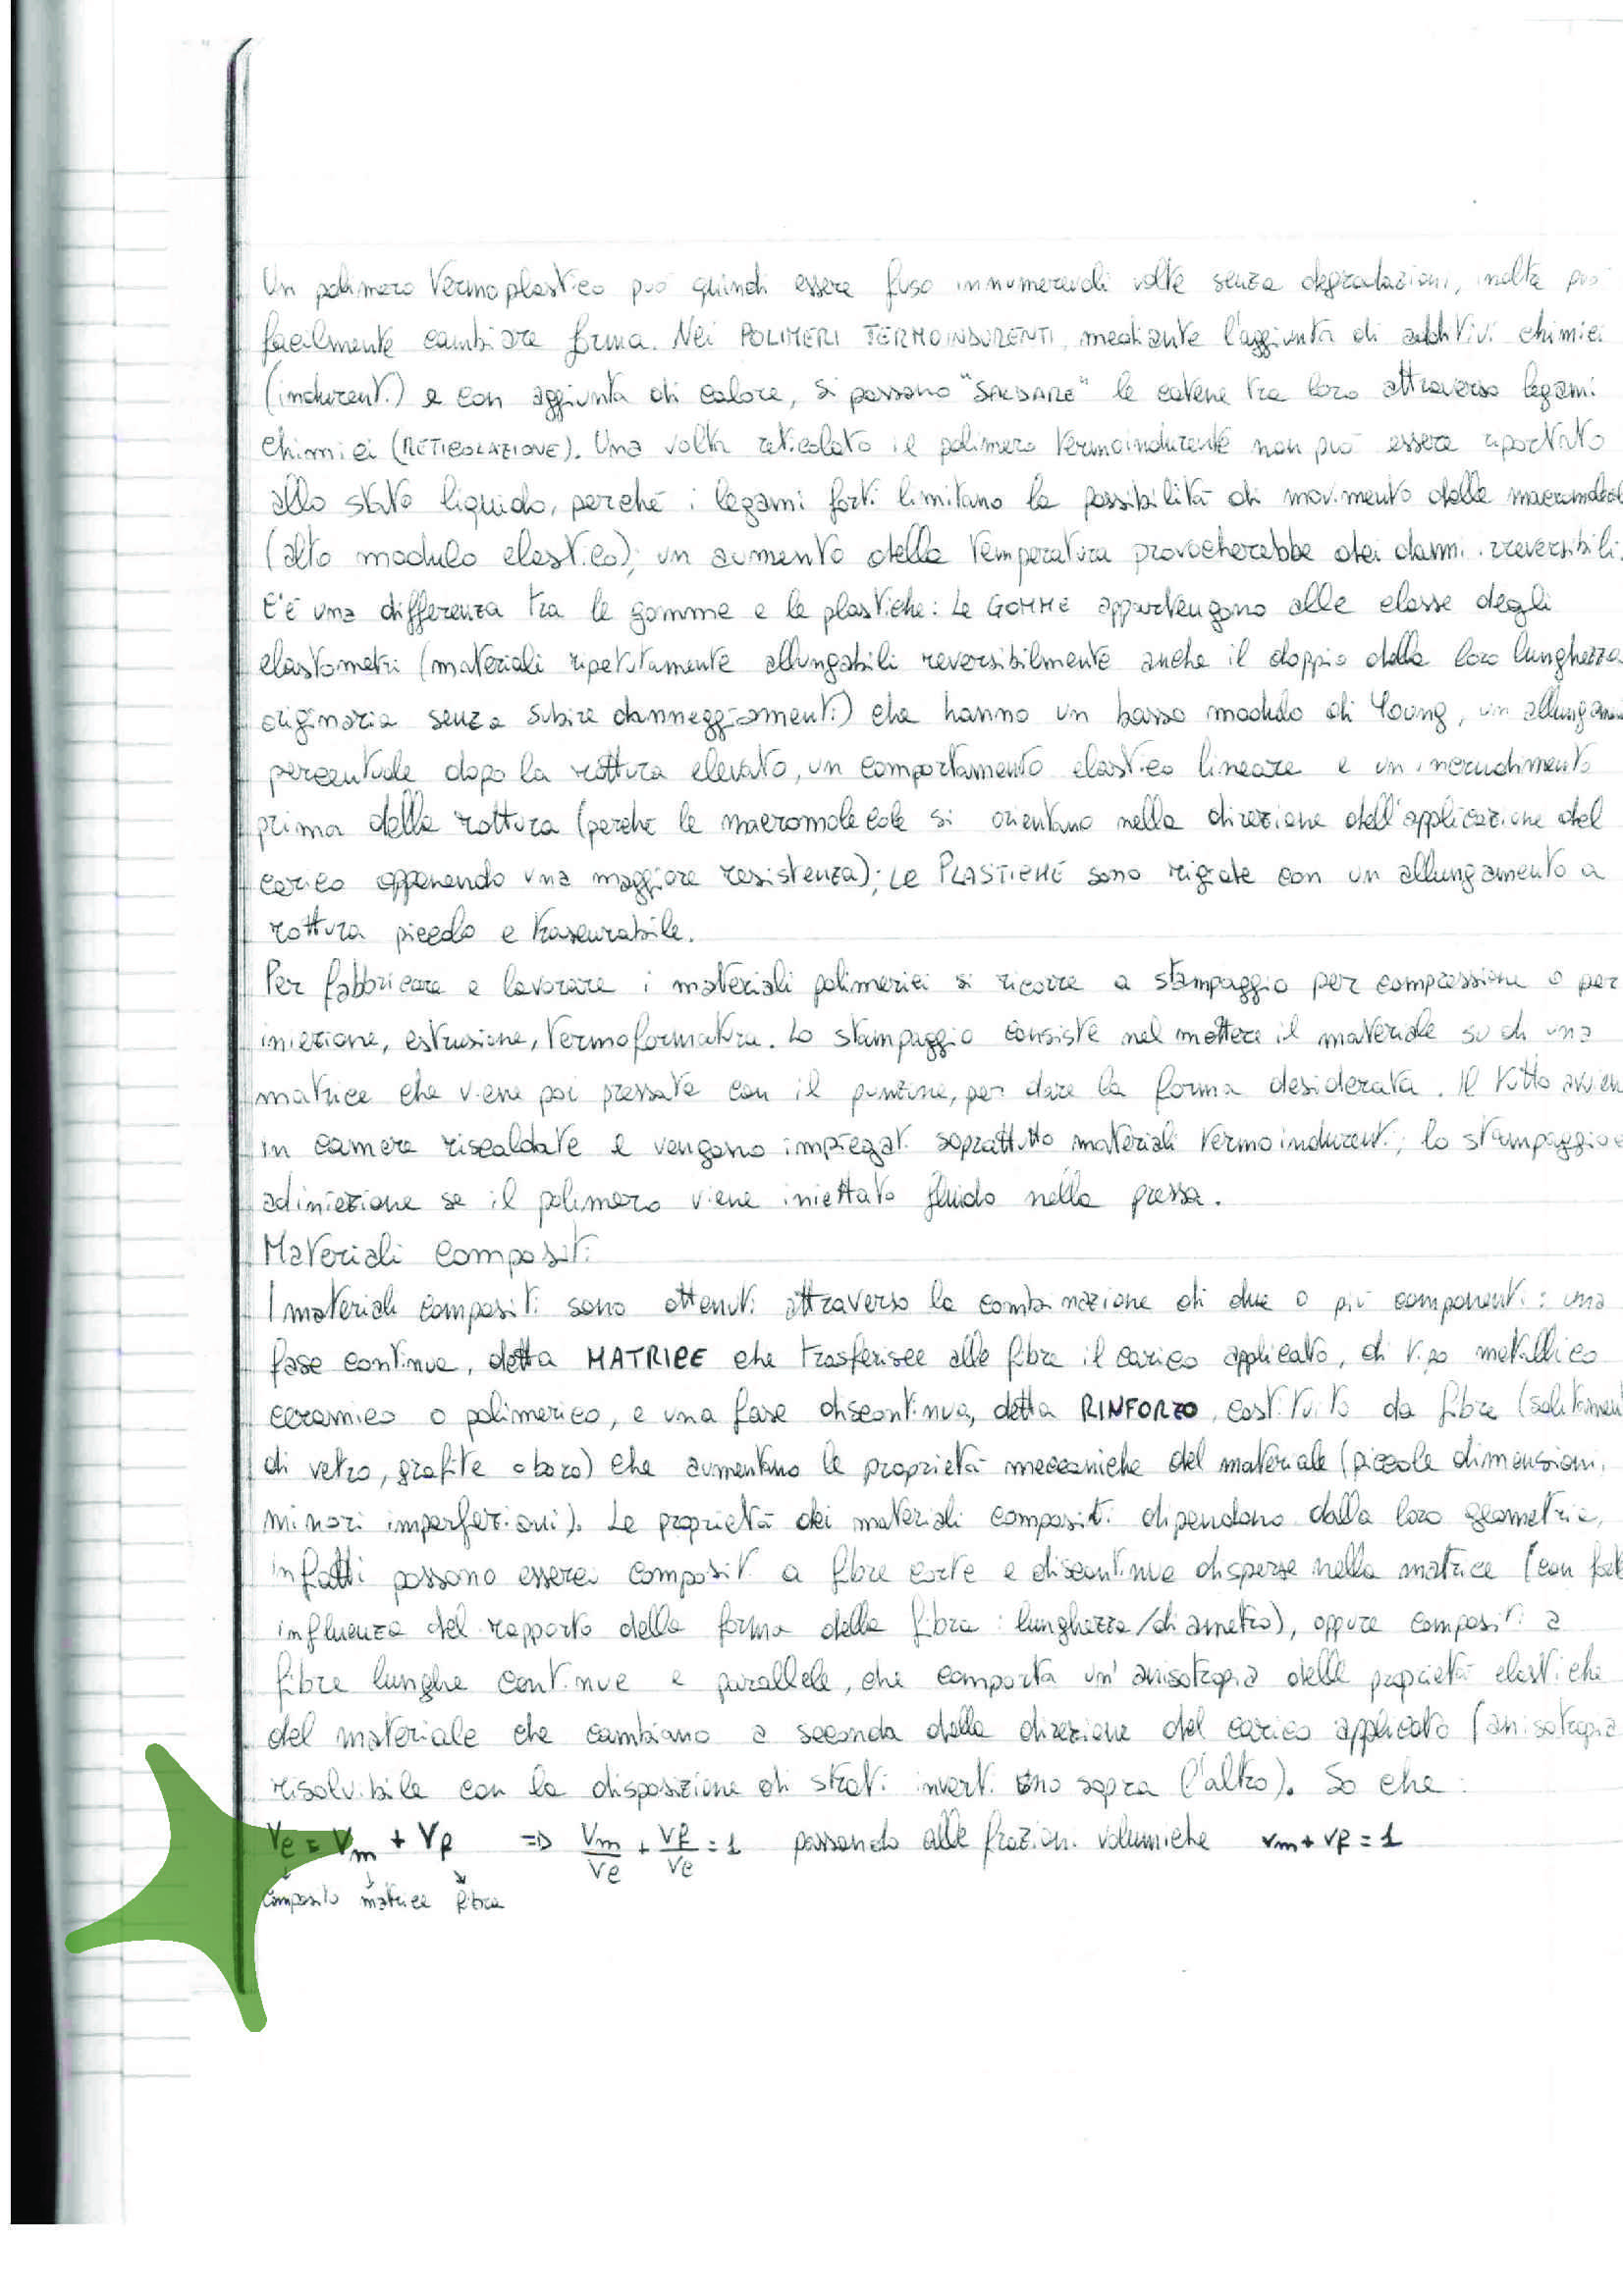 Un polimero termoplastico può quindi essere fuso innumerevoli volte senza degradazioni, inoltre può
facilmente cambiare forma. Nei POLIMERI TERMOINDURENTI, mediante l'aggiunta di additivi chimici
(indurenti) e con aggiunta di calore, si possono "SALDARE" le catene tra loro attraverso legami
chimici (RETICOLAZIONE). Una volta reticolato il polimero termoindurente non può essere riportato
allo stato liquido, perché i legami forti limitano la possibilità di movimento delle macromolecol
(alto modulo elastico); un aumento della temperatura provocherebbe dei danni irreversibili.
C'è una differenza tra le gomme e le plastiche: Le GOMME appartengono alle classe degli
elastometri (materiali ripetutamente allungabili reversibilmente anche il doppio della loro lunghezza
originaria senza subire danneggiamenti) che hanno un basso modulo di Young, un allungamen
percentuale dopo la rottura elevato, un comportamento elastico lineare e un incrudimento
prima della rottura (perché le macromolecole si orientano nella direzione dell'applicazione del
carico opponendo una maggiore resistenza); Le PLASTICHE sono rigide con un allungamento a
rottura piccolo e trascurabile.
Per fabbricare e lavorare i materiali polimerici si ricorre a stampaggio per compressione o per
iniezione, estrusione, termoformatura. Lo stampaggio consiste nel mettere il materiale su di una
matrice che viene poi pressata con il punzone, per dare la forma desiderata. Il tutto avvien
in camere riscaldate e vengono impiegati soprattutto materiali termoindurenti; lo stampaggio è
ad iniezione se il polimero viene iniettato fluido nella pressa.
Materiali compositi
I materiali compositi sono ottenuti attraverso la combinazione di due o più componenti: una
fase continua, detta MATRICE che trasferisce alle fibre il carico applicato, di tipo metallico
ceramico o polimerico, e una fase discontinua, detta RINFORZO, costituito da fibre (solitamen
di vetro, grafite o boro) che aumentano le proprietà meccaniche del materiale (piccole dimensioni,
minori imperfezioni). Le proprietà dei materiali compositi dipendono dalla loro geometria,
infatti possono esserci compositi a fibre corte e discontinue disperse nella matrice (con fort
influenza del rapporto della forma della fibra: lunghezza/diametro), oppure compositi a
fibre lunghe continue e parallele, che comporta un'anisotropia delle proprietà elastiche
del materiale che cambiano a seconda della direzione del carico applicato (anisotropia
risolvibile con la disposizione di strati inverti uno sopra l'altro). So che:
Vc = Vm + Vf ⇒ Vm/Vc + Vf/Vc = 1 passando alle frazioni volumiche vm + vf = 1
composito matrice fibra